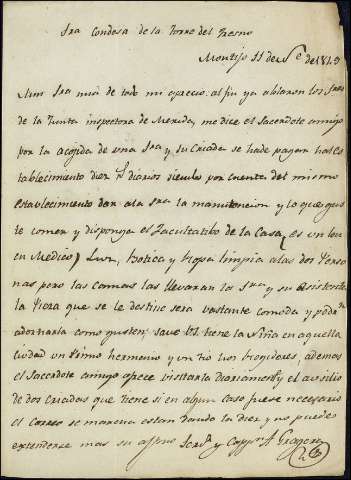 Sra Condesa de la Torre del Fresno
Montijo 11 de Se de 1849
Mui Sra mia de todo mi aprecio: al fin ya ablaron los Sres
de la Junta inspectora de Merida, me dice el Sacerdote amigo
por la acojida de una Sra y su Criada se ha de pagar ha el Es
tablecimiento diez rs diarios siendo por cuenta del mismo
establecimiento dar a la Sra la manutencion y lo que gus
te comer y disponga el facultatibo de la Casa (es un buen
Medico) Luz, botica y Ropa limpia a las dos Perso
nas pero las camas las llevaran la Sra y su Asistenta
la Pieza que se le destine sera bastante comoda y podrn
adornarla como gusten: save V. tiene la Niña en aquella
ciudad un Primo hermano y un tio los Regidores, ademas
el Sacerdote amigo ofece visitarla diariamente y el ausilio
de dos Criadas que tiene si en algun caso fuese necesario
el Correo se marcha estan dando la diez y no puedo
extenderse mas su afmo Servr y Cappn A Gragera